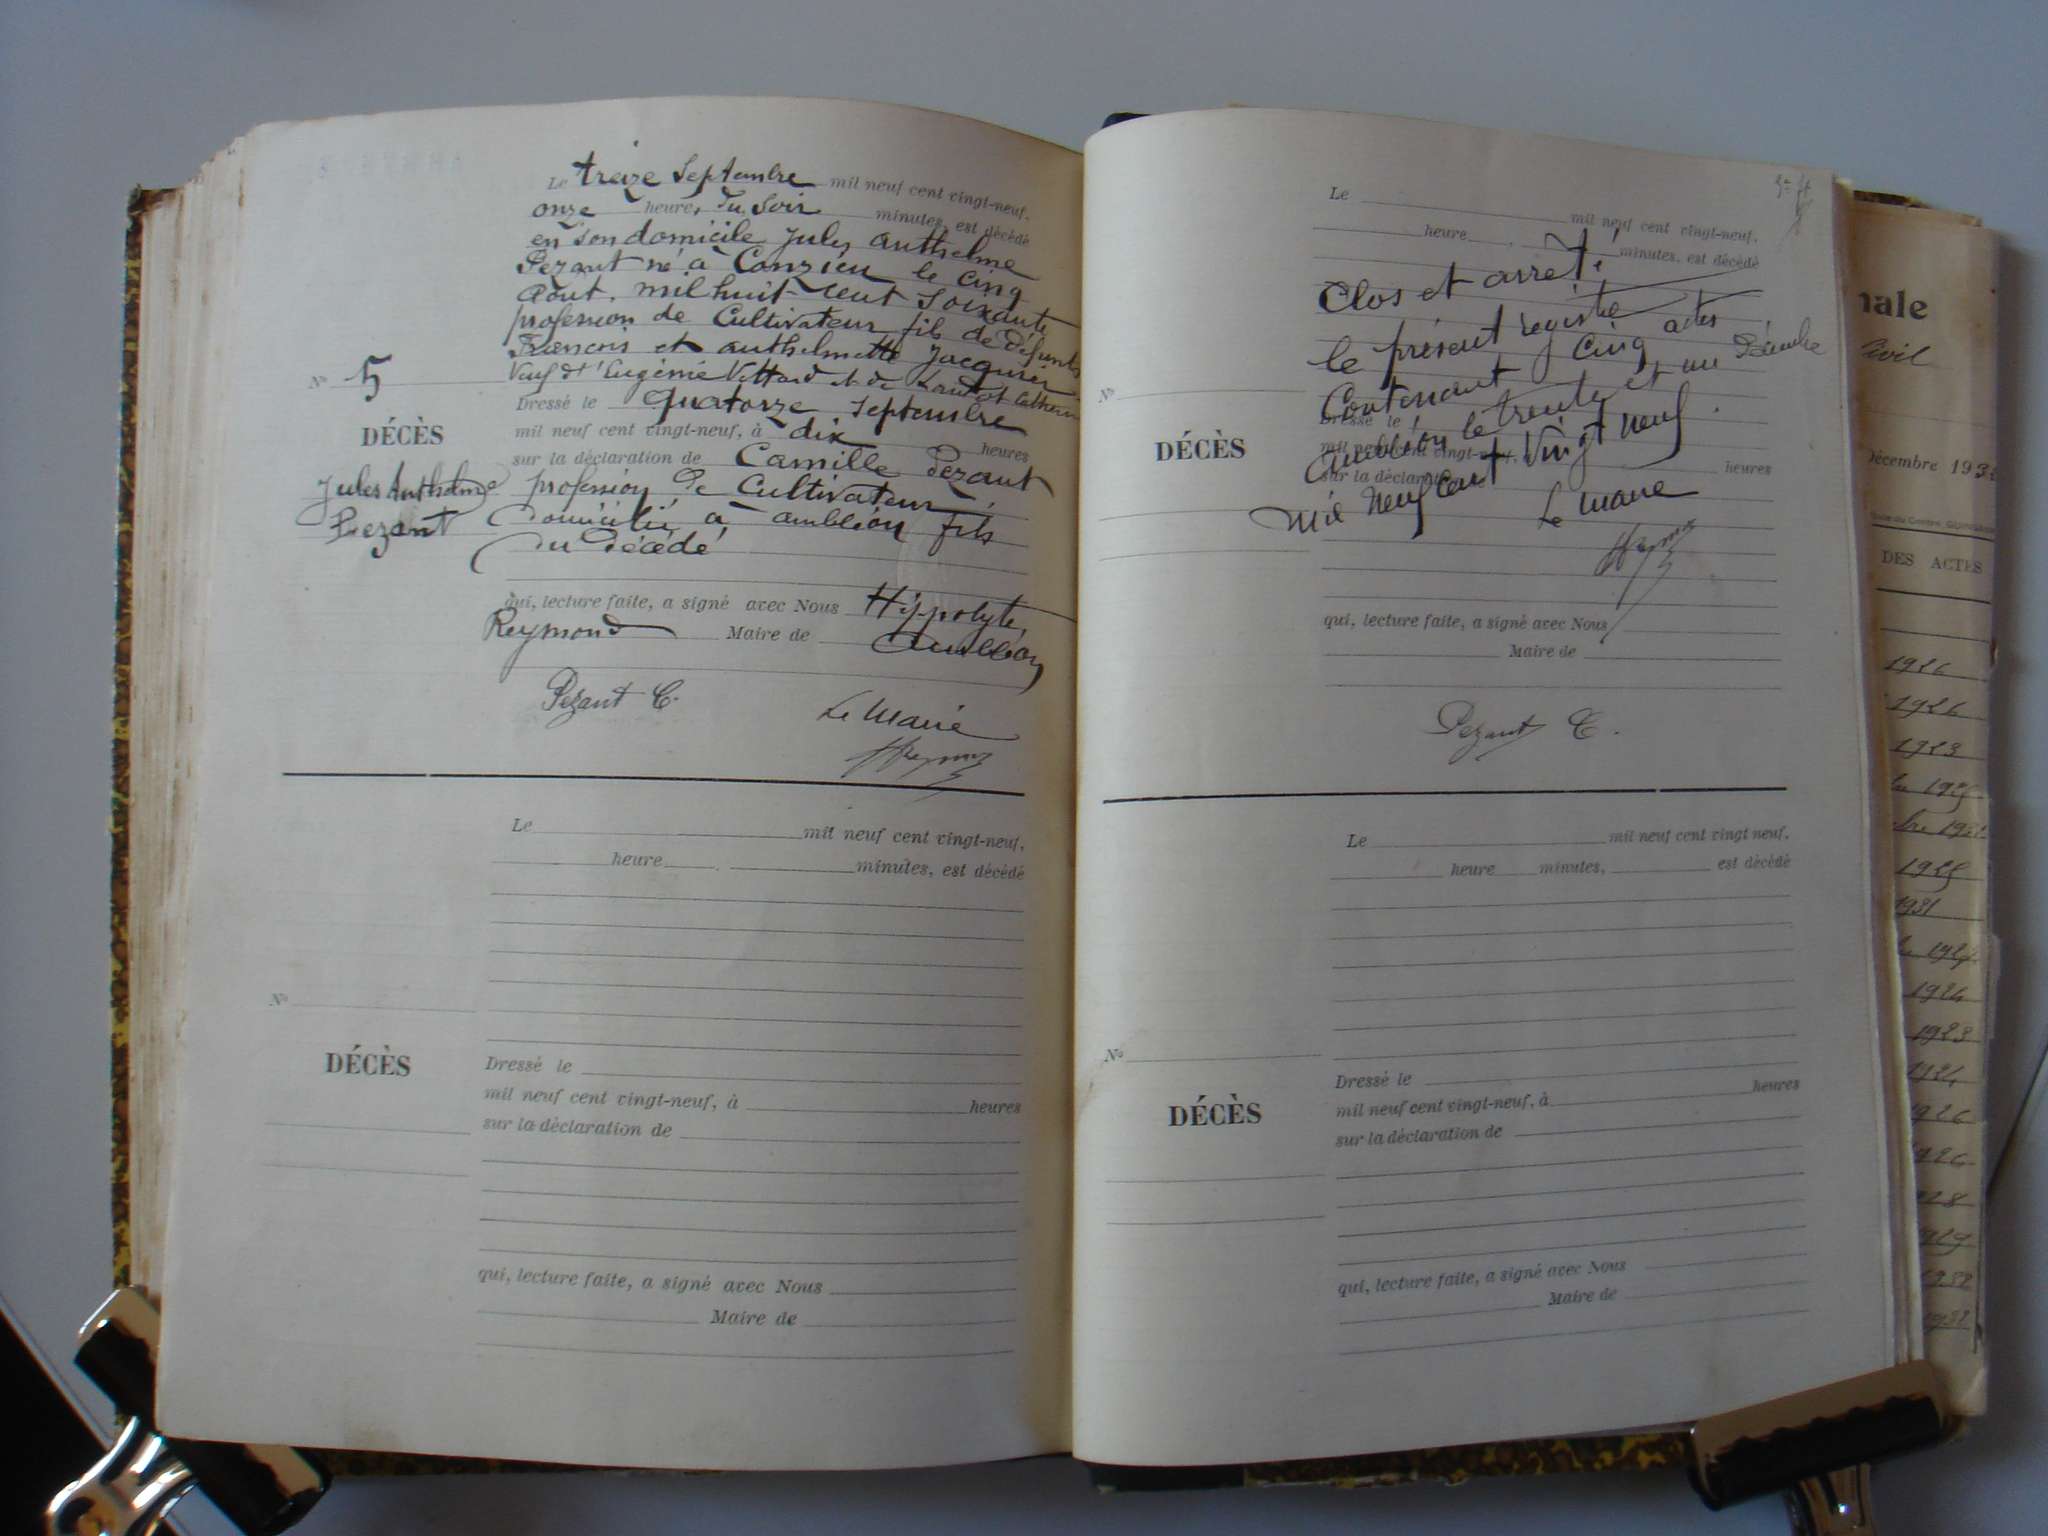 Le treize Septembre mil neuf cent vingt-neuf,
onze heures du soir minutes, est décédé
en son domicile Jules Anthelme
Pezant né à Conzieu le cinq
Aout mil huit cent soixante
profession de Cultivateur fils de défunts
François et Anthelmette Jacquier
Veuf d'Eugénie Vettard et de
N° 5
Dressé le quatorze Septembre
DÉCÈS
mil neuf cent vingt-neuf, à dix heures
sur la déclaration de Camille Pezant
Jules Anthelme
Pezant
profession de Cultivateur
domicilié à Ambléon fils
du décédé
qui, lecture faite, a signé avec Nous Hippolyte
Reymond Maire de Ambléon
Pezant C.
Le Maire
HReymond
Le mil neuf cent vingt-neuf,
heure minutes, est décédé
N°
DÉCÈS
Dressé le
mil neuf cent vingt-neuf, à heures
sur la déclaration de
qui, lecture faite, a signé avec Nous
Maire de
Le mil neuf cent vingt-neuf,
heure minutes, est décédé
Clos et arrêté
le présent registre
Contenant Cinq actes
N°
DÉCÈS
Dressé le
Ambléon le trente et un Décembre
mil neuf cent vingt-neuf
sur la déclaration heures
Mil Neuf Cent Vingt Neuf
Le Maire
HReymond
qui, lecture faite, a signé avec Nous
Maire de
Pezant C.
Le mil neuf cent vingt neuf,
heure minutes, est décédé
N°
DÉCÈS
Dressé le
mil neuf cent vingt-neuf, à heures
sur la déclaration de
qui, lecture faite, a signé avec Nous
Maire de
nale
Civil
Décembre 193
DES ACTES
1926
1926
1923
1925
1925
1931
1924
1923
1924
1926
1926
1932